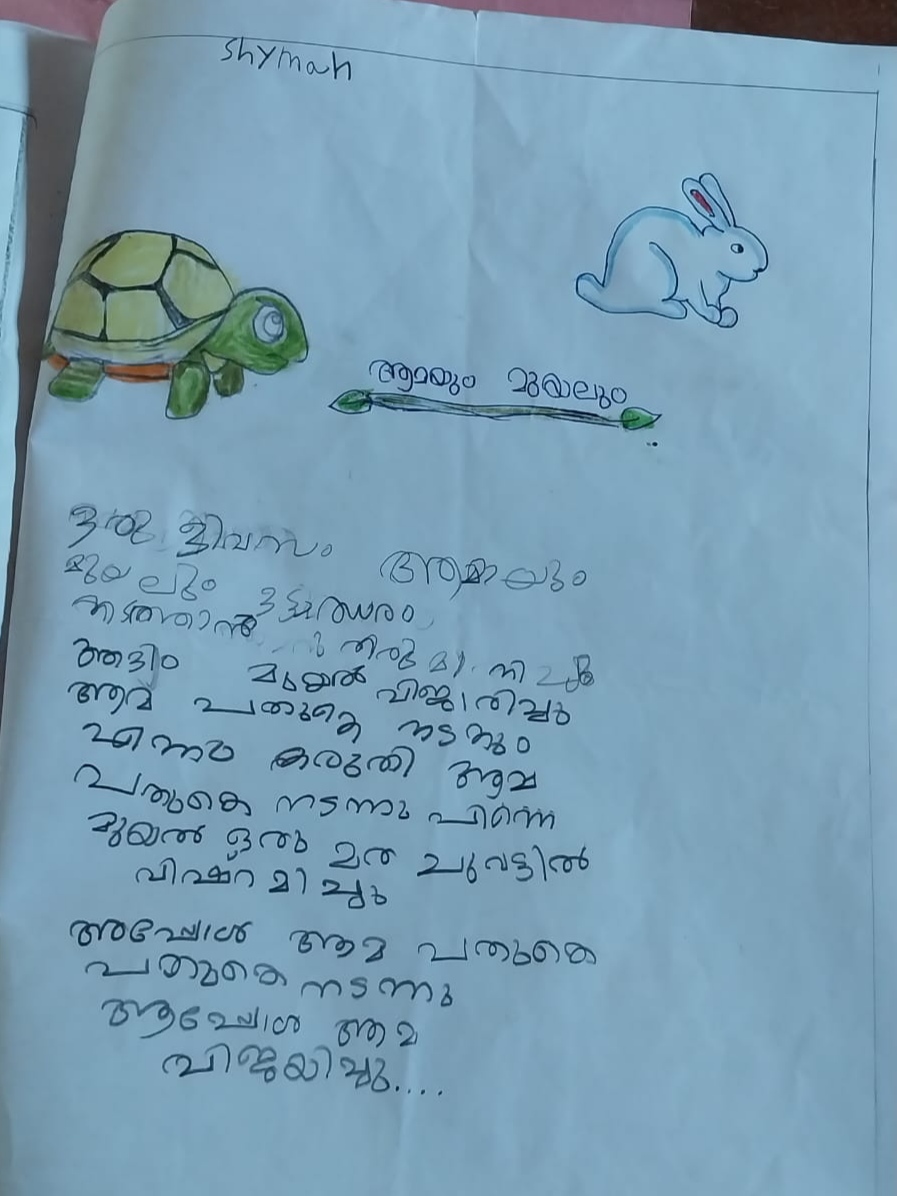 Shymah
ആമയും മുയലും
ഒരു ദിവസം ആമയും
മുയലും ഓട്ടമത്സരം
നടത്താൻ തിരുമാനിച്ചു
ആദ്യം മുയൽ വിജാരിച്ചു
ആമ പതുകെ നടന്നും
എന്നം കരുതി ആമ
പതുകെ നടന്നു പിന്നെ
മുയൽ ഒരു മര ചുവട്ടിൽ
വിഷ്റമിച്ചു
അപ്പോൾ ആമ പതുകെ
പതുകെ നടന്നു
ആപ്പോൾ ആമ
വിജയിച്ചു....